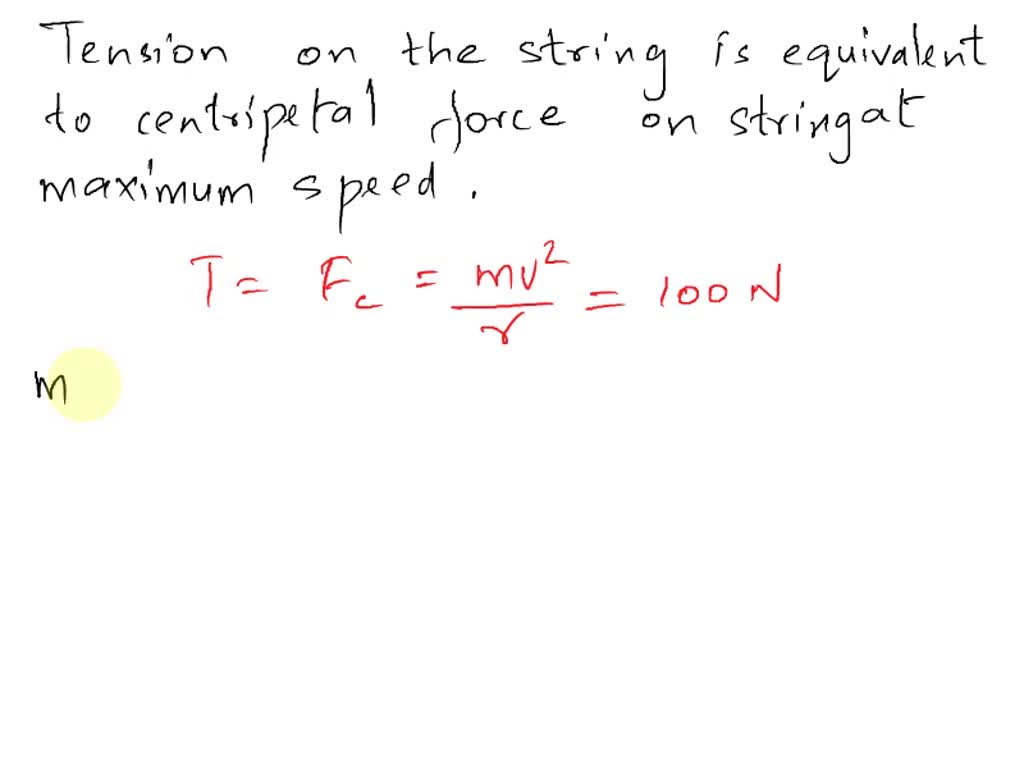 Tension on the string is equivalent
to centripetal force on stringat
maximum speed.
T = Fc = mv²/r = 100 N
m